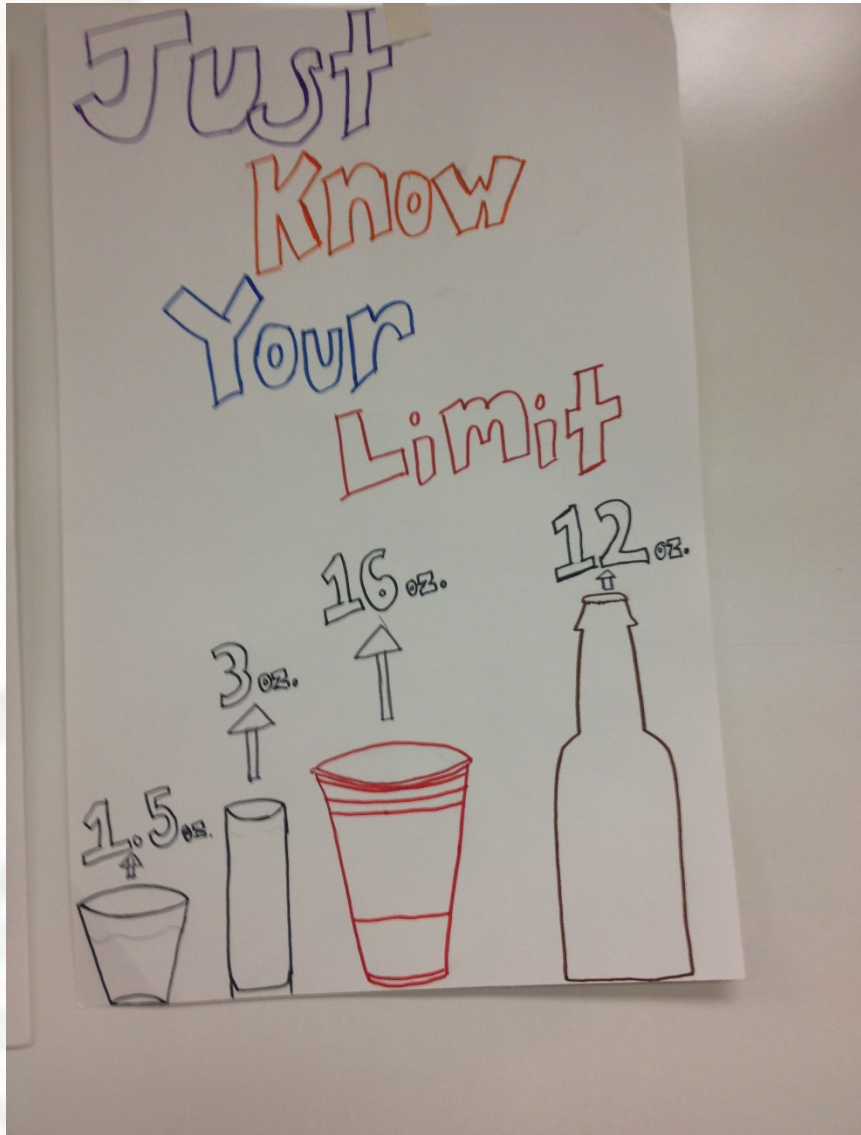 Just
Know
Your
Limit
12 oz.
16 oz.
3 oz.
1.5 oz.